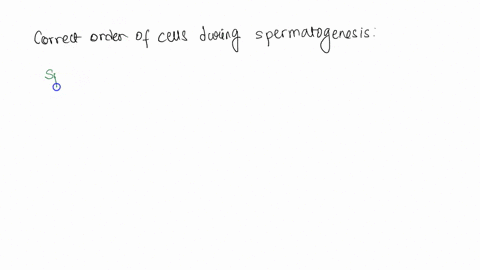 Correct order of cells during spermatogenesis:
Sp